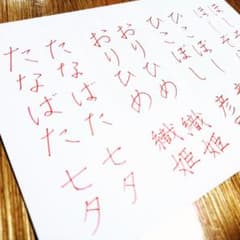 ひこぼし 彦
おりひめ 織姫
おりひめ 織姫
たなばた 七夕
たなばた 七夕